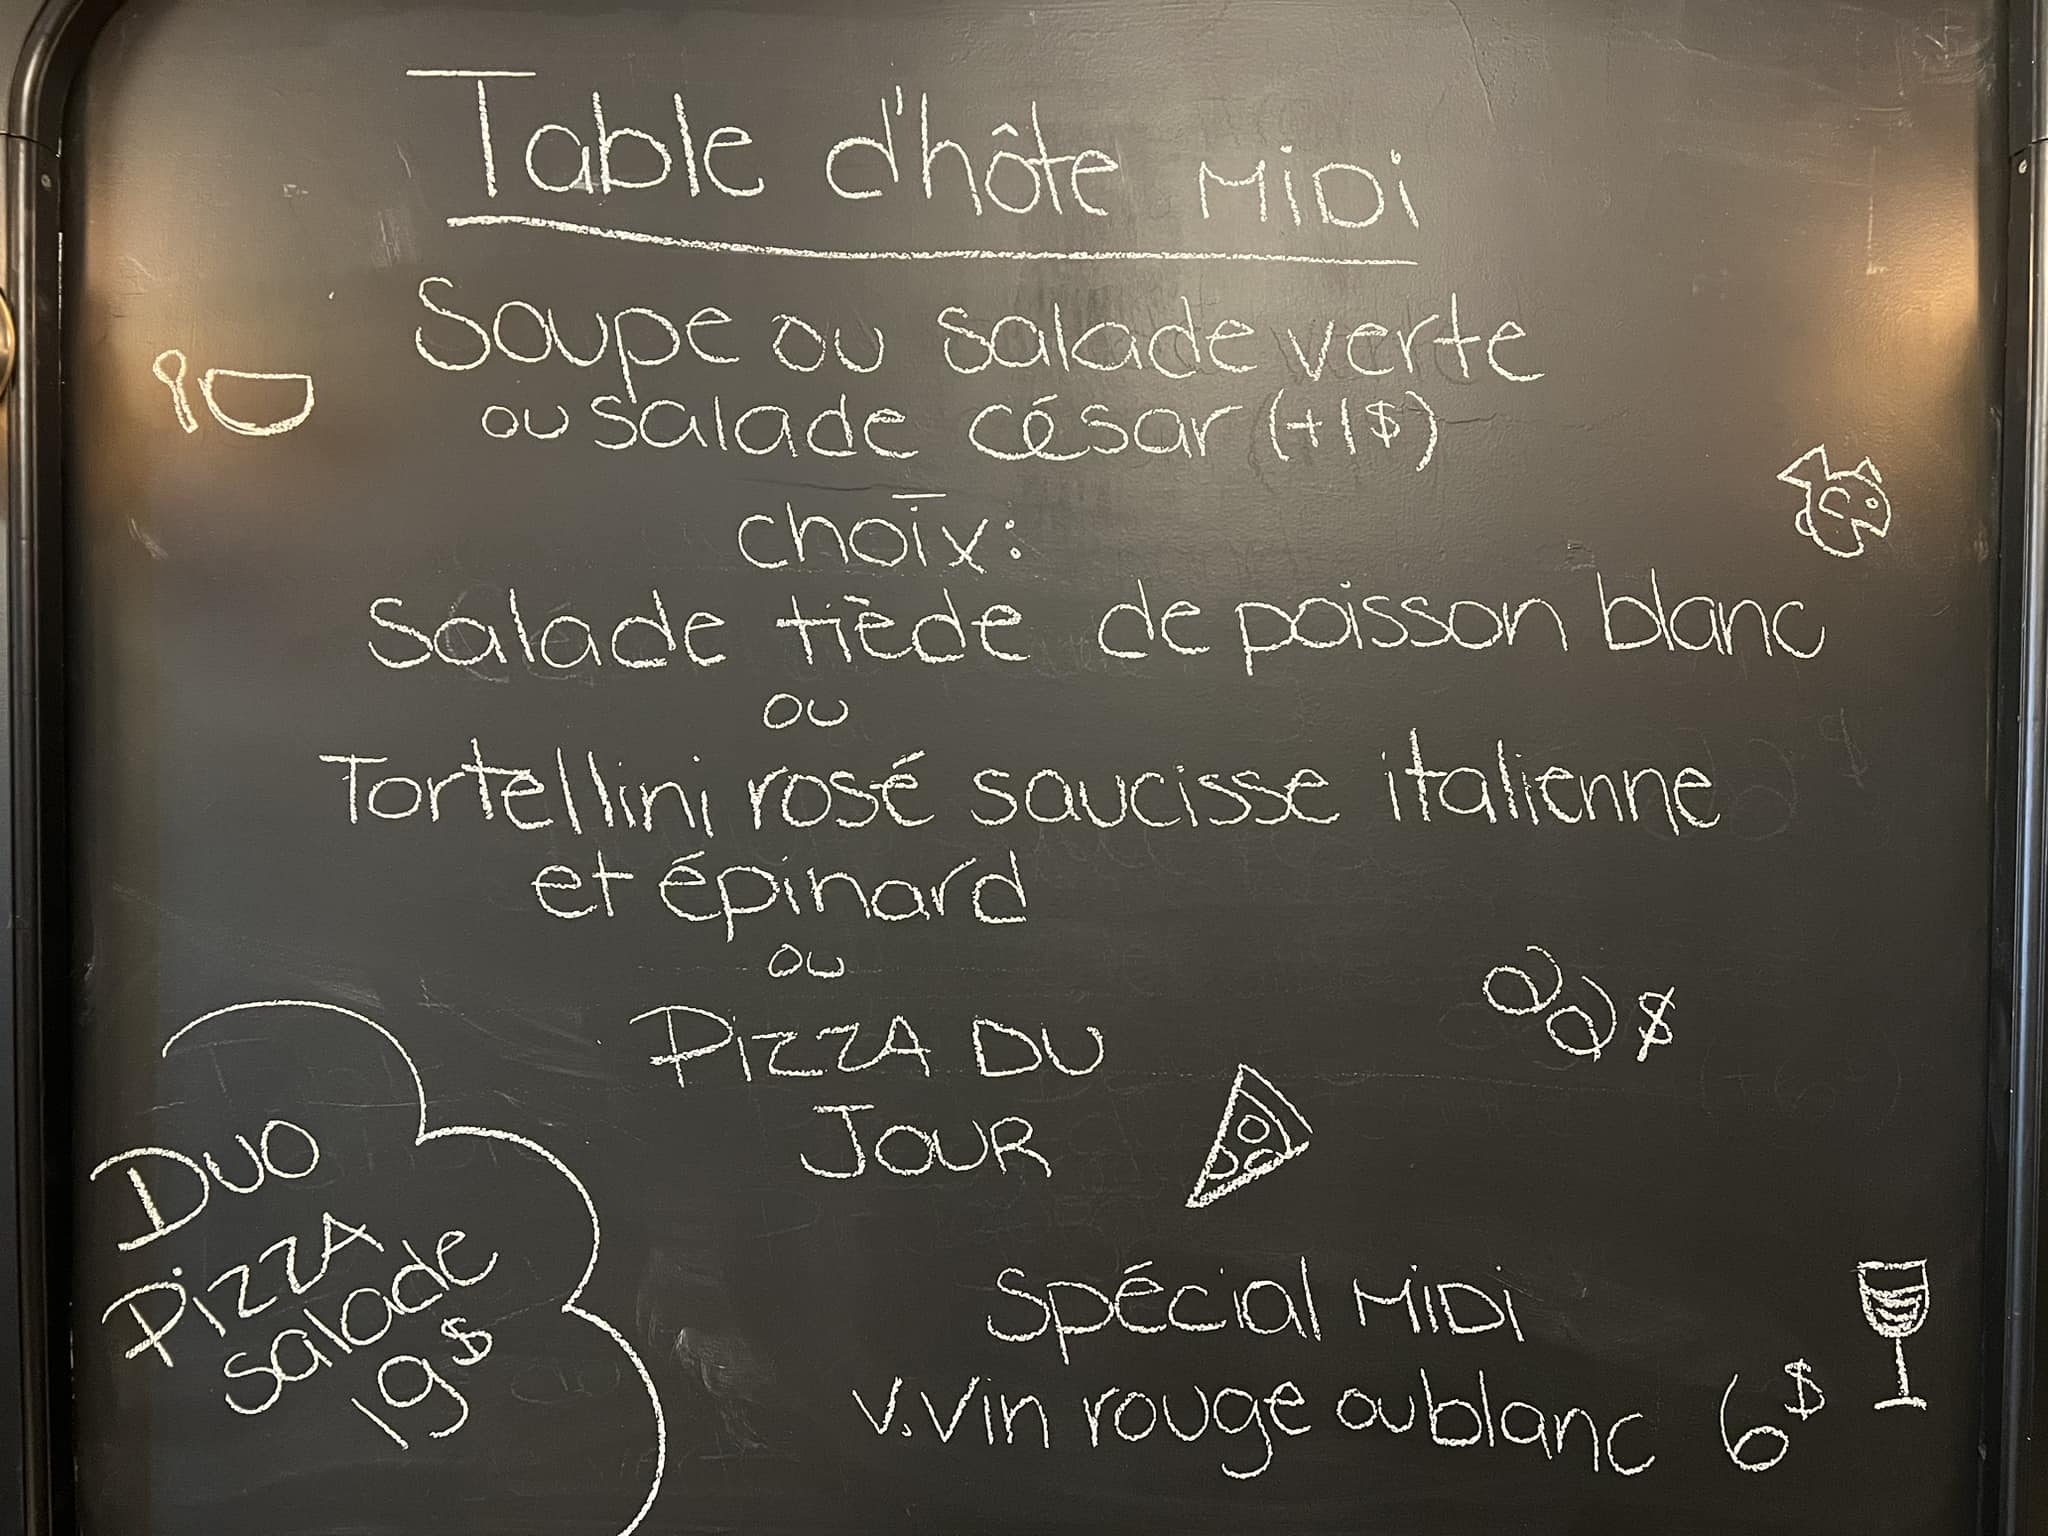 Table d'hôte MiDi
Soupe ou salade verte
ou salade césar (+1$)
choix:
Salade tiède de poisson blanc
ou
Tortellini rosé saucisse italienne
et épinard
ou
PiZZA DU
JOUR
22$
DUO
PiZZA
salade
19$
Spécial MiDi
v.vin rouge ou blanc 6$